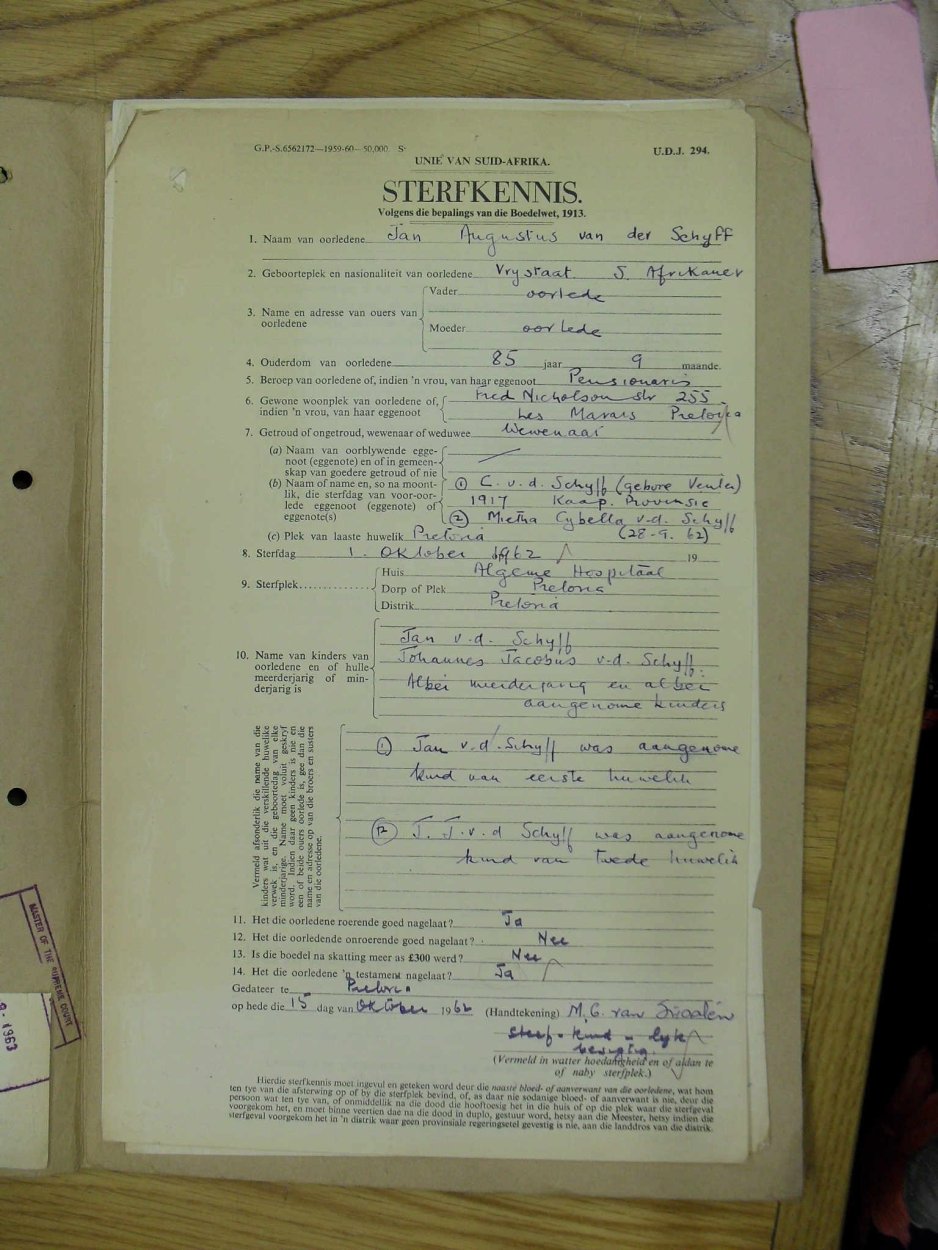 G.P.-S.6562172—1959-60—50,000. S·
U.D.J. 294.
UNIE VAN SUID-AFRIKA.
STERFKENNIS.
Volgens die bepalings van die Boedelwet, 1913.
1. Naam van oorledene Jan Augustus van der Schyff
2. Geboorteplek en nasionaliteit van oorledene Vrystaat S. Afrikaner
3. Name en adresse van ouers van oorledene
Vader oorlede
Moeder oorlede
4. Ouderdom van oorledene 85 jaar 9 maande.
5. Beroep van oorledene of, indien 'n vrou, van haar eggenoot Pensionaris
6. Gewone woonplek van oorledene of, Fred Nicholson str 255
indien 'n vrou, van haar eggenoot Les Marais Pretoria
7. Getroud of ongetroud, wewenaar of weduwee Wewenaar
(a) Naam van oorblywende egge-
noot (eggenote) en of in gemeen-
skap van goedere getroud of nie
(b) Naam of name en, so na moont- ① C. v.d. Schyff (gebore Venter)
lik, die sterfdag van voor-oor- 1917 Kaap. Provinsie
lede eggenoot (eggenote) of
eggenote(s) ② Mietha Cybella v.d. Schyff
(c) Plek van laaste huwelik Pretoria (28-9. 62)
8. Sterfdag 1. Oktober 1962 19
9. Sterfplek
Huis Algeme Hospitaal
Dorp of Plek Pretoria
Distrik Pretoria
Jan v.d. Schyff
10. Name van kinders van Johannes Jacobus v.d. Schyff.
oorledene en of hulle
meerderjarig of min- Albei meerderjarig en albei
derjarig is aangenome kinders
Vermeld afsonderlik die name van die
kinders wat uit die verskillende huwelike
verwek is, en die geboortedag van elke
minderjarige. Name moet voluit geskryf
word. Indien daar geen kinders is nie en
een of beide ouers oorlede is, gee dan die
name en adresse op van die broers en susters
van die oorledene.
① Jan v.d. Schyff was aangenome
kind van eerste huwelik
② J. J. v.d Schyff was aangenome
kind van twede huwelik
11. Het die oorledene roerende goed nagelaat? Ja
12. Het die oorledende onroerende goed nagelaat? Nee
13. Is die boedel na skatting meer as £300 werd? Nee
14. Het die oorledene 'n testament nagelaat? Ja
Gedateer te Pretoria
op hede die 15 dag van Oktober 1962 (Handtekening) M. C. van
(Vermeld in watter hoedanigheid en of aldan te
of naby sterfplek.)
Hierdie sterfkennis moet ingevul en geteken word deur die naaste bloed- of aanverwant van die oorledene, wat hom
ten tye van die afsterwing op of by die sterfplek bevind, of, as daar nie sodanige bloed- of aanverwant is nie, deur die
persoon wat ten tye van, of onmiddellik na die dood die hooftoesig het in die huis of op die plek waar die sterfgeval
voorgekom het, en moet binne veertien dae na die dood in duplo, gestuur word, hetsy aan die Meester, hetsy indien die
sterfgeval voorgekom het in 'n distrik waar geen provinsiale regeringsetel gevestig is nie, aan die landdros van die distrik.
MASTER OF THE SUPREME COURT
1963